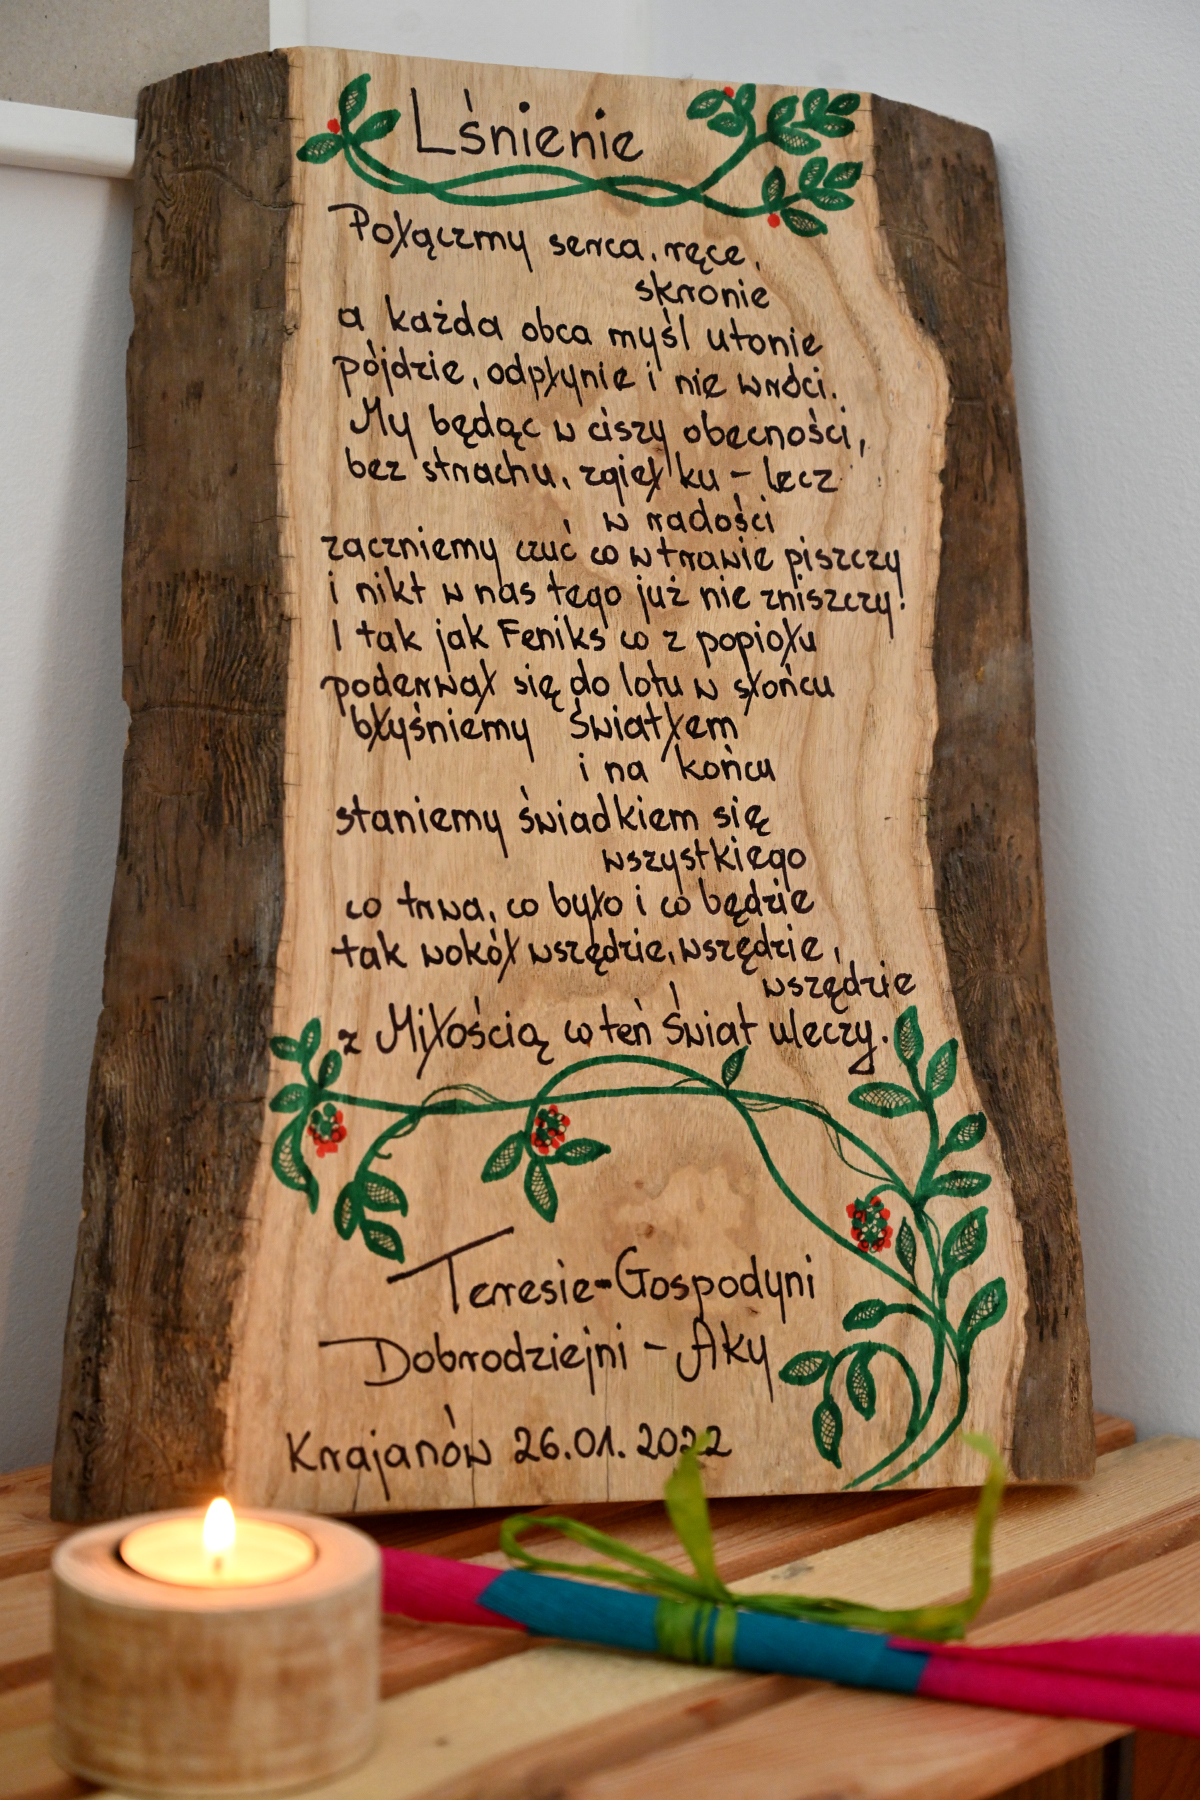 Lśnienie
Połączmy serca, ręce,
skronie
a każda obca myśl utonie
pójdzie, odpłynie i nie wróci.
My będąc w ciszy obecności,
bez strachu, zgiełku – lecz
w radości
zaczniemy czuć co w trawie piszczy
i nikt w nas tego już nie zniszczy!
I tak jak Feniks co z popiołu
poderwał się do lotu w słońcu
błyśniemy Światłem
i na końcu
staniemy świadkiem się
wszystkiego
co trwa, co było i co będzie
tak wokół wszędzie, wszędzie,
wszędzie
z Miłością co ten Świat uleczy.
Teresie-Gospodyni
Dobrodziejni – Aky
Krajanów 26.01.2022